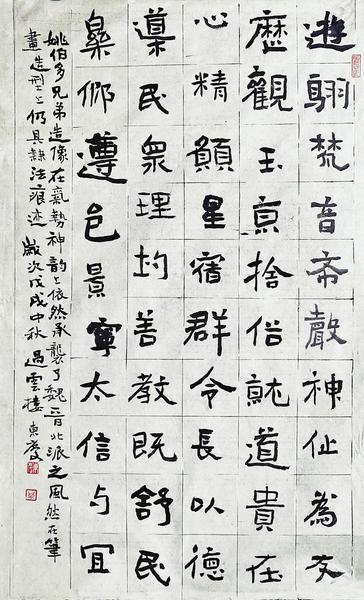 遊梵音斋聲神仙為友
歷觀玉京捨俗就道貴在
心精顯星宿群令長以德
導民眾理均善教既舒民
遵邑景寧太信与宜
姚伯多兄弟造像在氣勢神韵上依然承襲了魏晋北派之風然在筆
畫造型上仍具隸法痕迹 歲次戊戌中秋過雲樓東